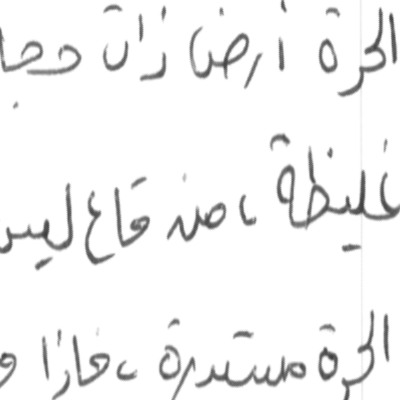 الحرة أرضا ذات حجا
غليظة، من قاع ليس
الحرة مستديرة، فاذا